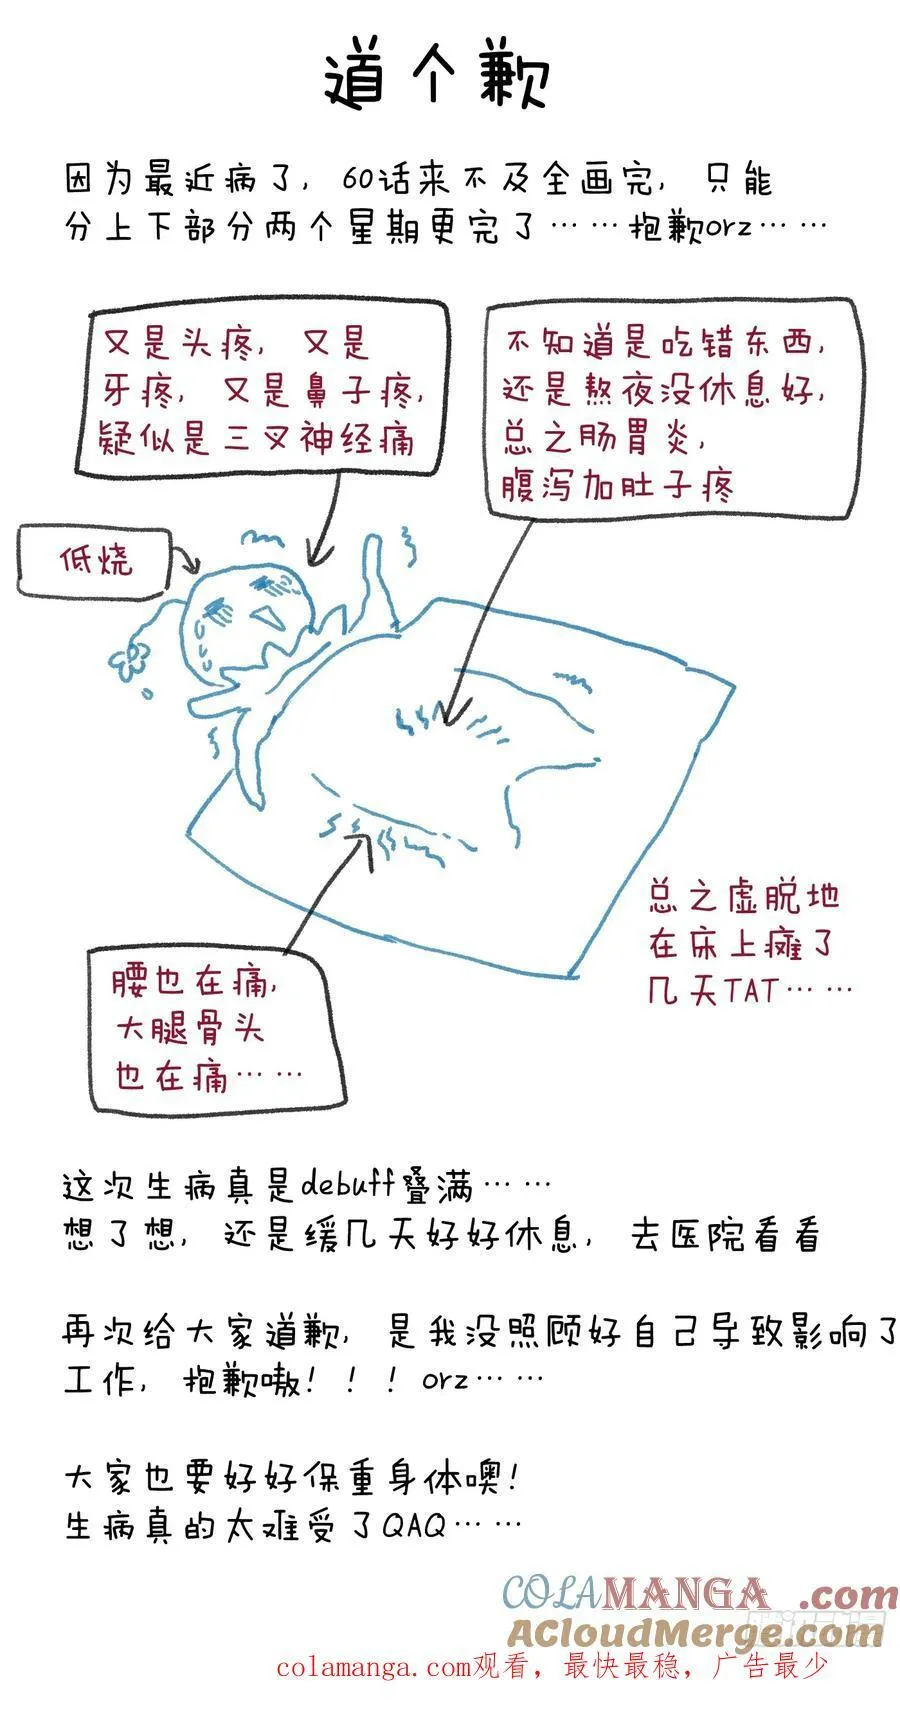 道个歉
因为最近病了，60话来不及全画完，只能
分上下部分两个星期更完了……抱歉orz……
又是头疼，又是
牙疼，又是鼻子疼，
疑似是三叉神经痛
不知道是吃错东西，
还是熬夜没休息好，
总之肠胃炎，
腹泻加肚子疼
低烧
总之虚脱地
在床上瘫了
几天TAT……
腰也在痛，
大腿骨头
也在痛……
这次生病真是debuff叠满……
想了想，还是缓几天好好休息，去医院看看
再次给大家道歉，是我没照顾好自己导致影响了
工作，抱歉嗷！！！orz……
大家也要好好保重身体噢！
生病真的太难受了QAQ……
COLAMANGA.com
ACloudMerge.com
colamanga.com观看，最快最稳，广告最少